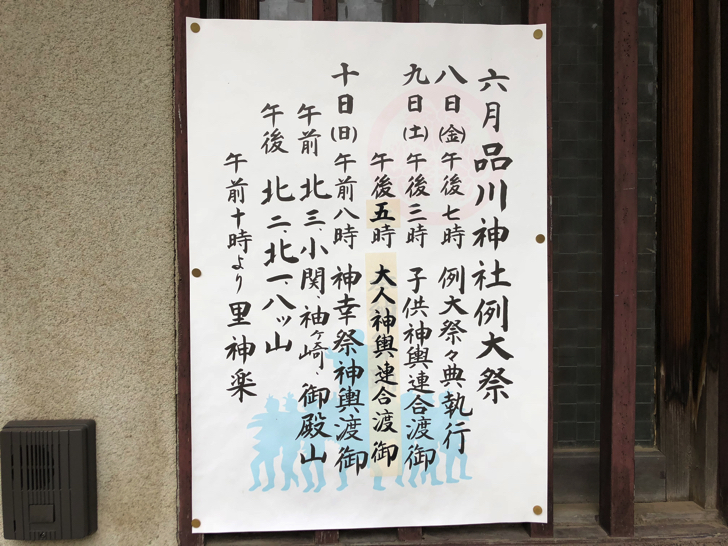 六月品川神社例大祭
八日㈮午後七時 例大祭々典執行
九日㈯午後三時 子供神輿連合渡御
午後五時 大人神輿連合渡御
十日㈰午前八時 神幸祭神輿渡御
午前 北三、小関、袖ヶ崎、御殿山
午後 北二、北一、八ッ山
午前十時より 里神楽